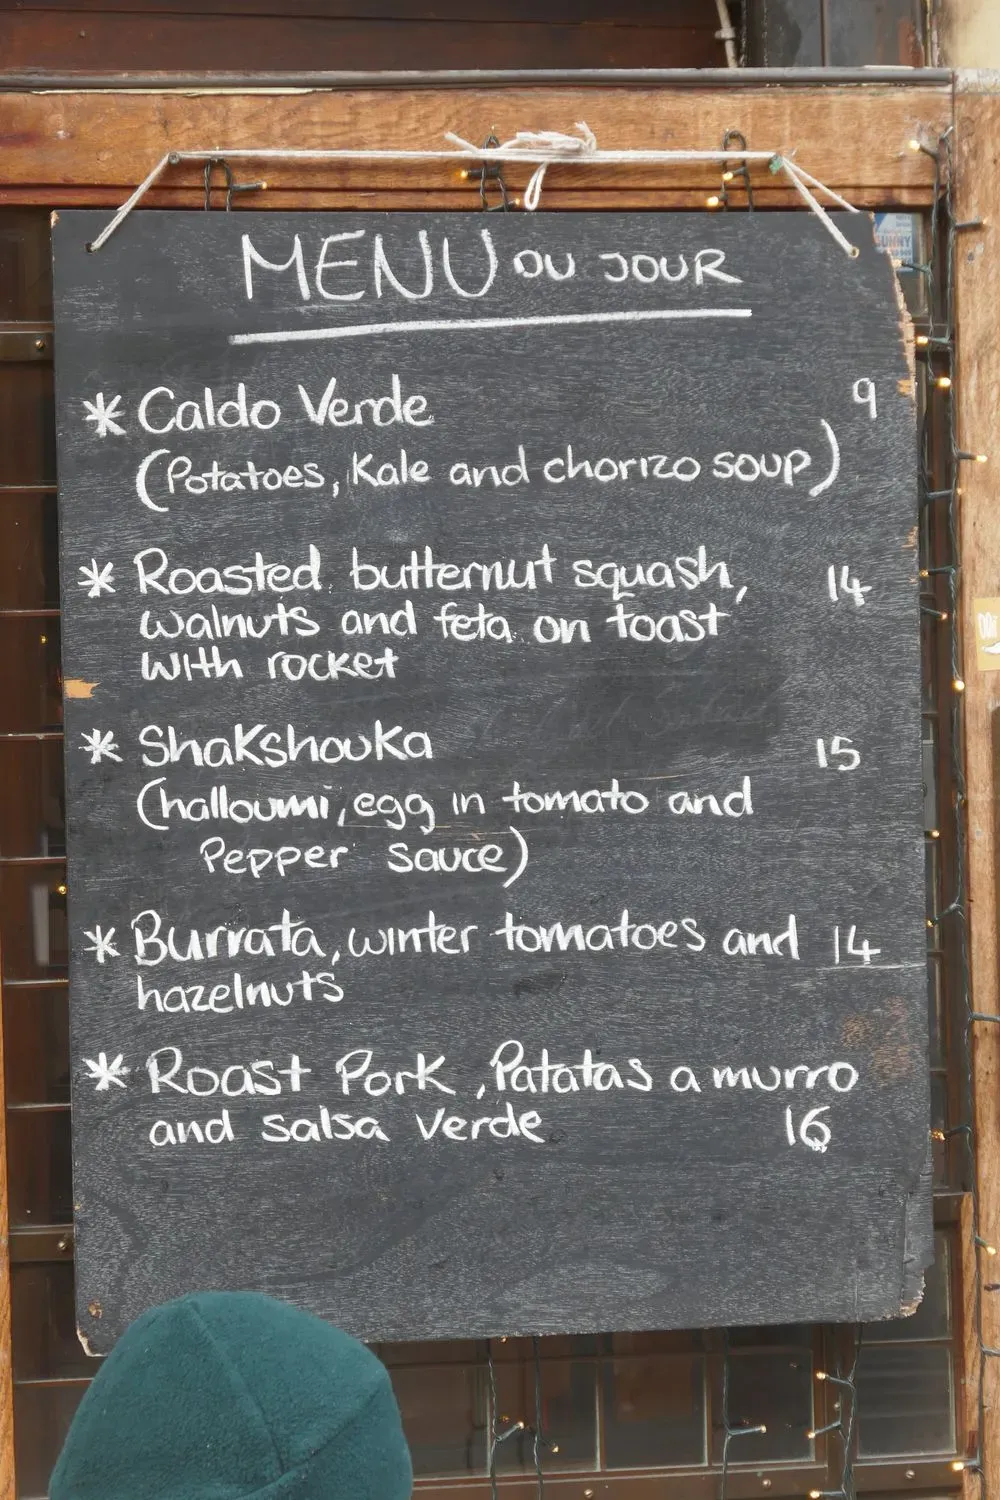 MENU OU JOUR
* Caldo Verde 9
(Potatoes, Kale and chorizo soup)
* Roasted butternut squash, 14
walnuts and feta on toast
with rocket
* Shakshouka 15
(halloumi, egg in tomato and
Pepper sauce)
* Burrata, winter tomatoes and 14
hazelnuts
* Roast Pork, Patatas a murro
and salsa verde 16